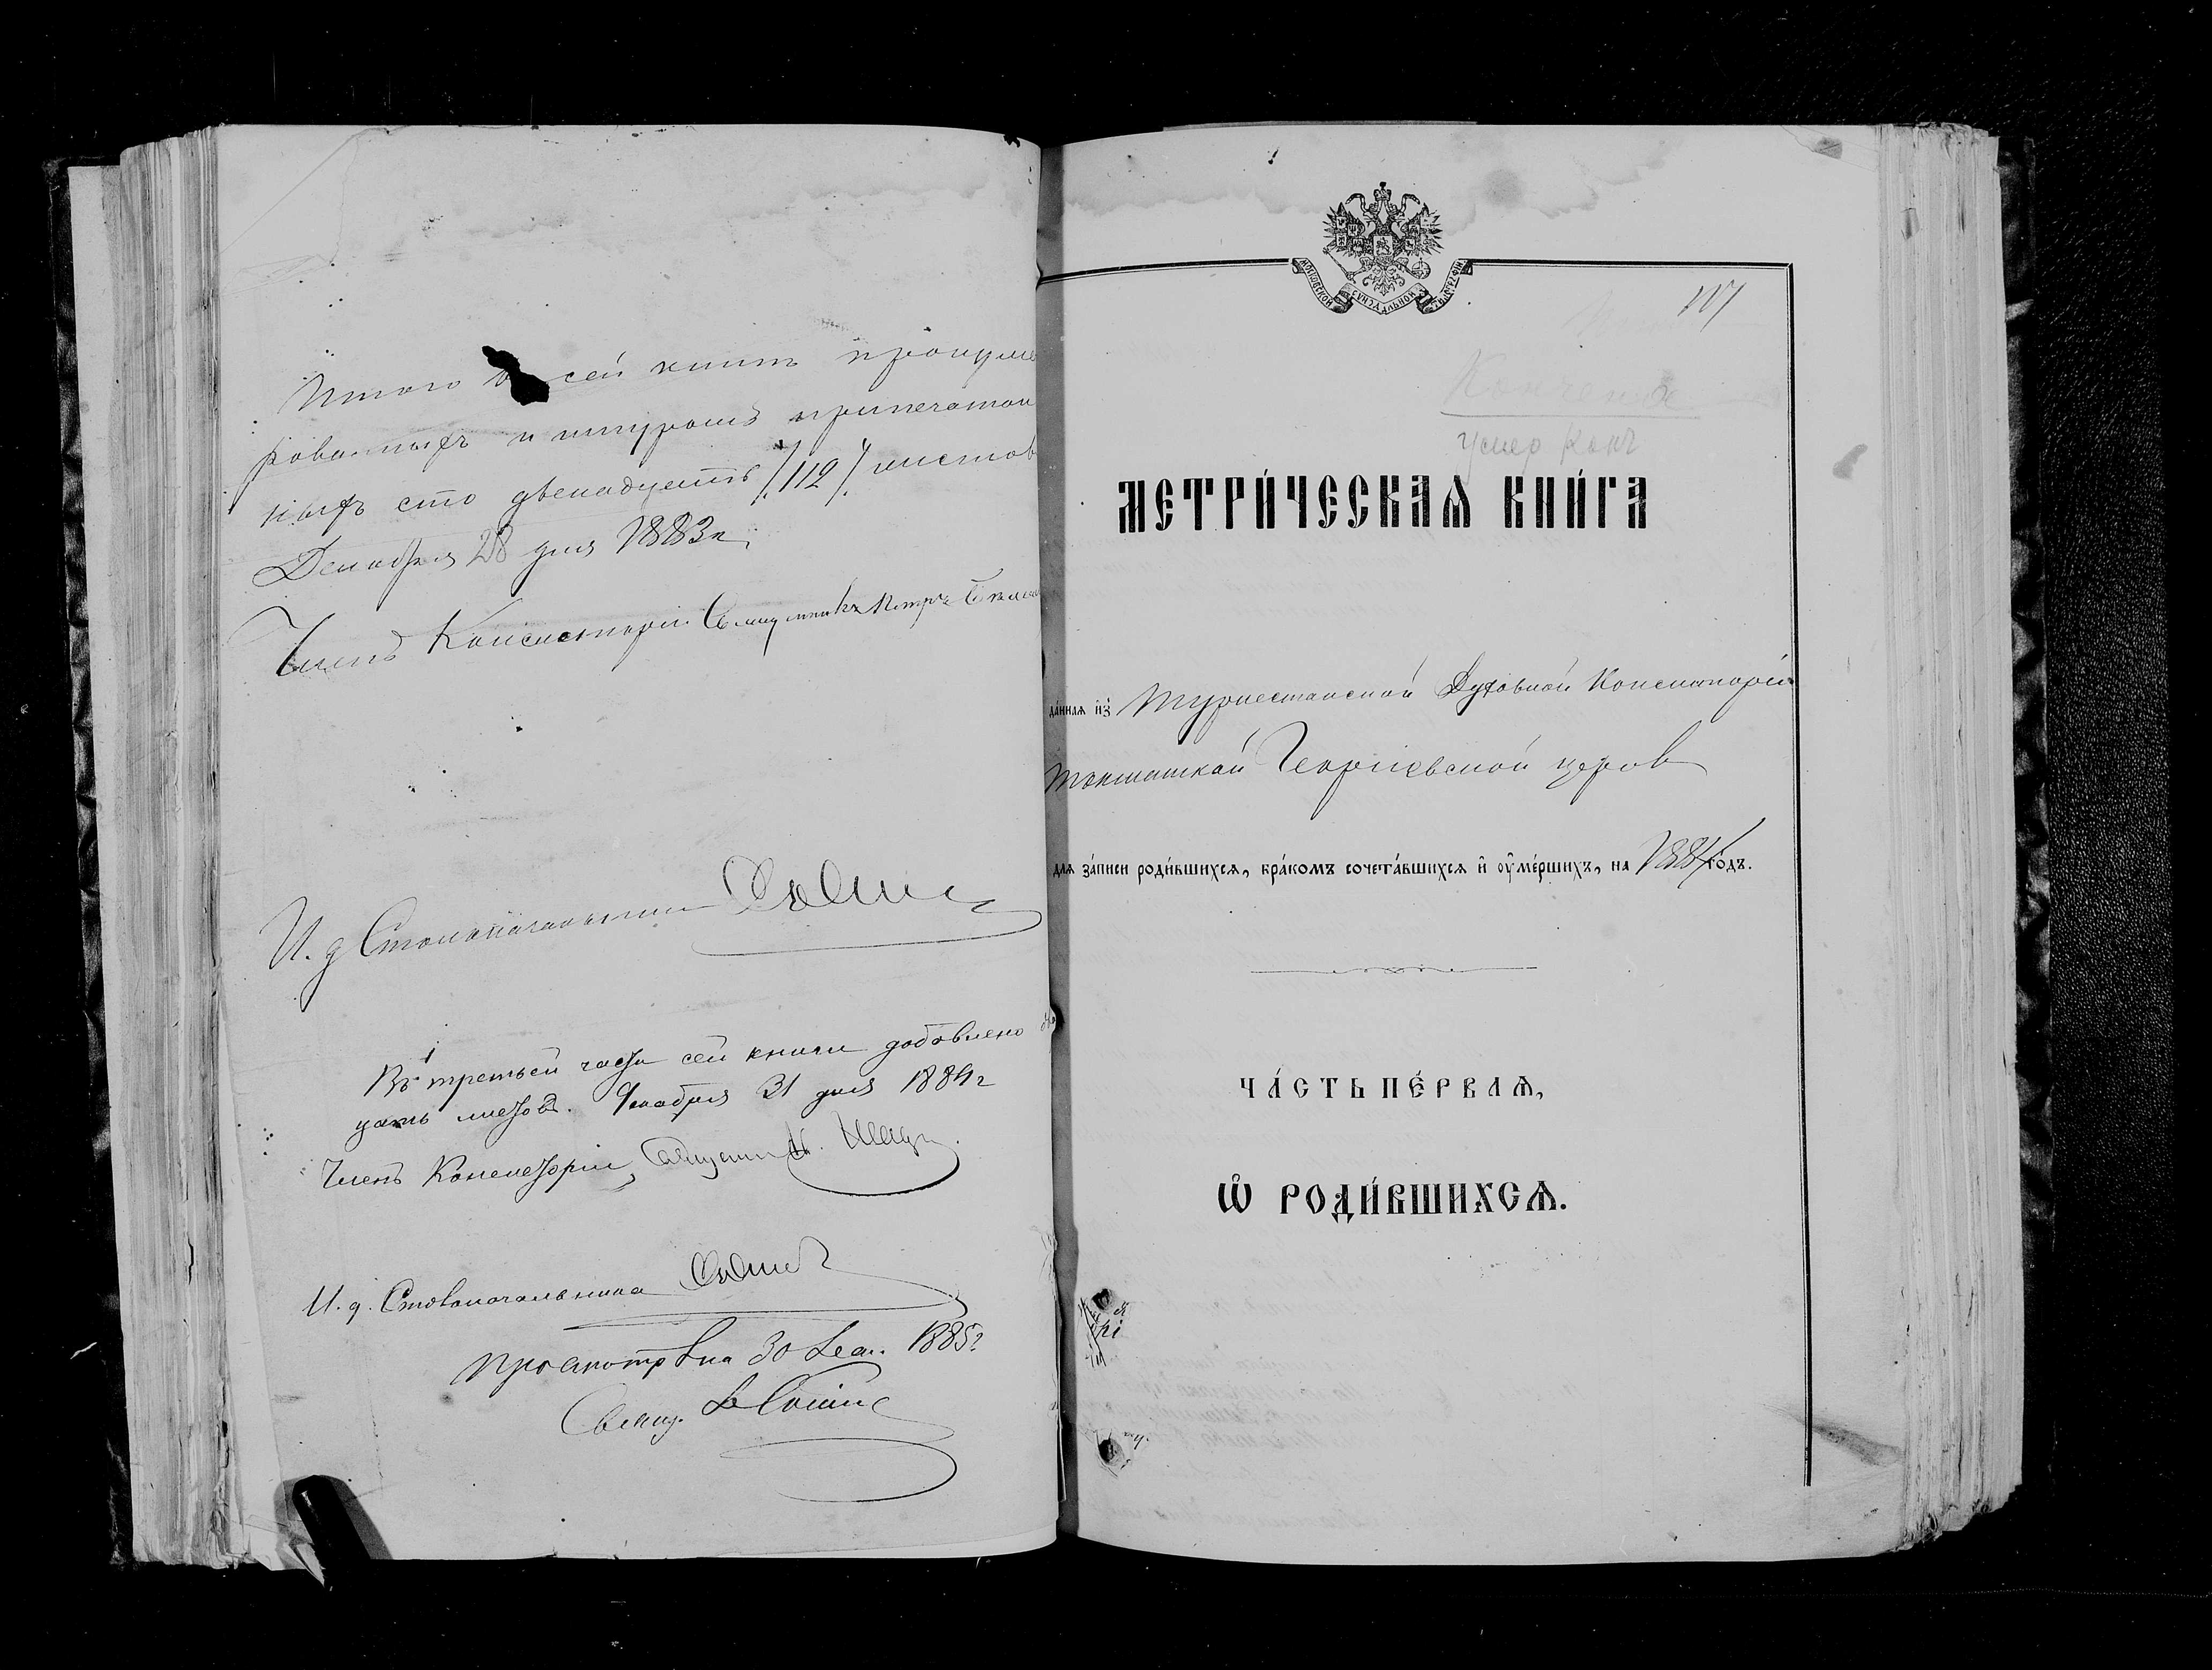 Итого въ сей книгѣ пронуме
рованныхъ и шнуромъ припечатан
ныхъ сто двенадцать /112/ листовъ
Декабря 28 дня 1883 г.
Членъ Консисторіи Священникъ Петръ
И. д Столоначальника
Въ третьей части сей книги добавлено
цать листовъ. Декабря 31 дня 1884 г
Членъ Консисторіи, Священникъ
И. д. Столоначальника
просмотрѣна 30 1885 г
Свящ.
МОСКОВСКОЙ СѴНОДАЛЬНОЙ ТИПОГРАФІИ
107
Кончены
умер Конч
МЕТРИ́ЧЕСКАѦ КНИ́ГА
да́ннаѧ и҆з̾ Туркестанской Духовной Консисторіи
Токмакской Георгіевской церкв
длѧ за́писи роди́вшихсѧ, бра́комъ сочета́вшихсѧ и҆ ᲂу҆ме́ршихъ, на 1884 го́дъ.
ЧА́СТЬ ПЕ́РВАѦ,
Ѽ РОДИ́ВШИХСѦ.